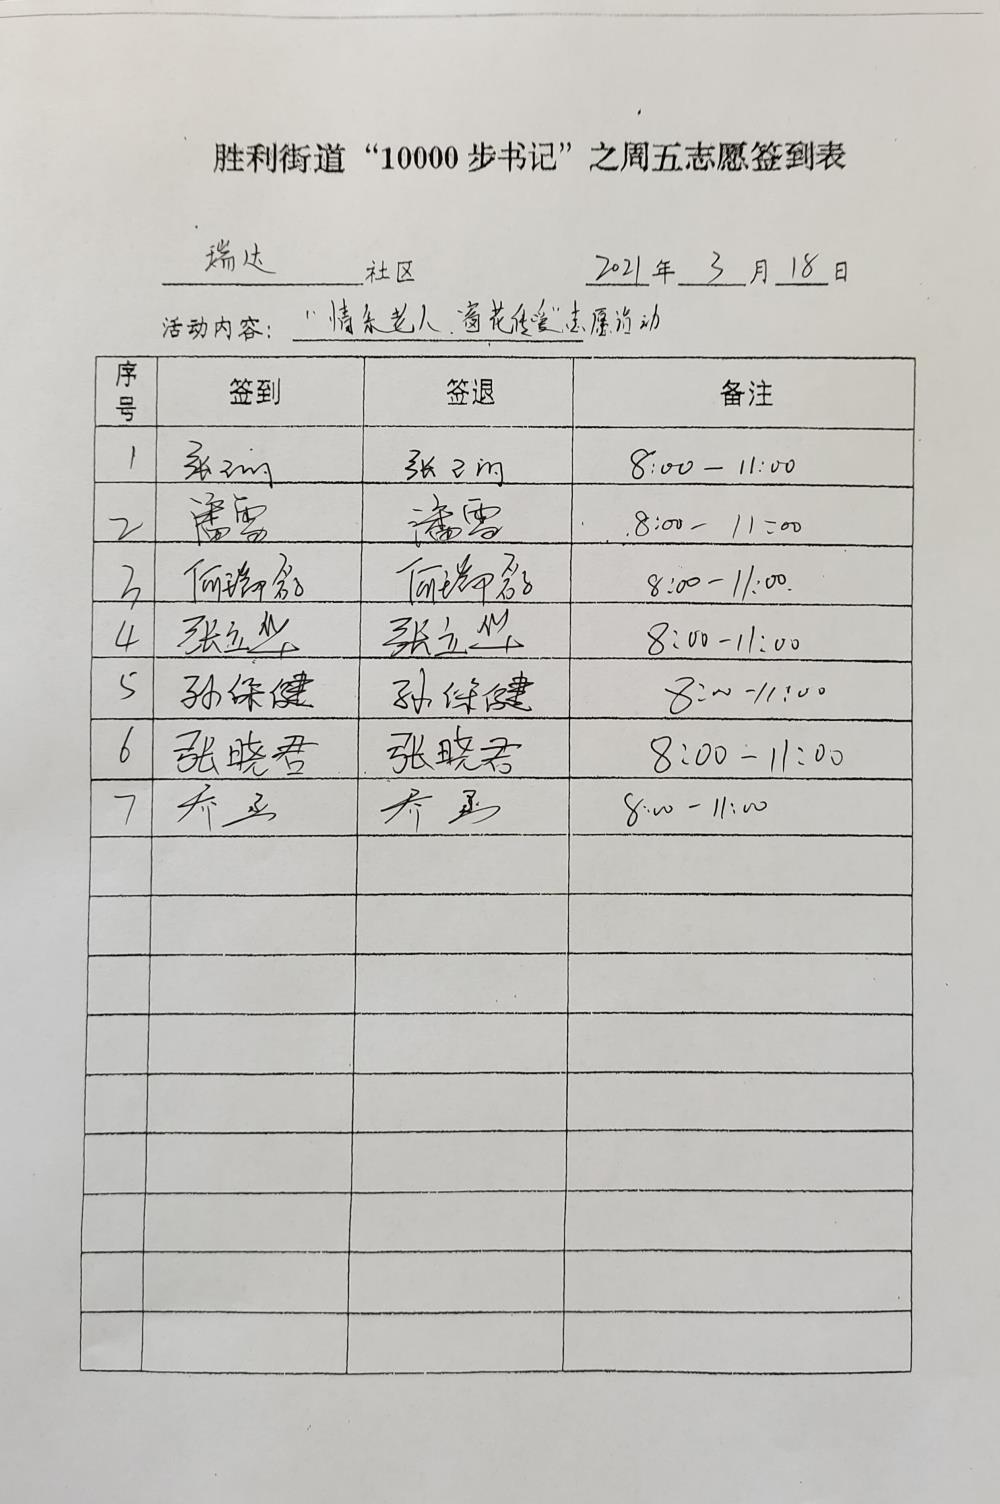 胜利街道“10000步书记”之周五志愿签到表
瑞达 社区 2021年 3 月 18 日
活动内容: “情系老人 窗花传爱”志愿活动
序号 签到 签退 备注
1 张 张 8:00-11:00
2 潘雪 潘雪 8:00-11:00
3 何瑞 何瑞 8:00-11:00
4 张立华 张立华 8:00-11:00
5 孙保健 孙保健 8:00-11:00
6 张晓君 张晓君 8:00-11:00
7 乔 乔 8:00-11:00